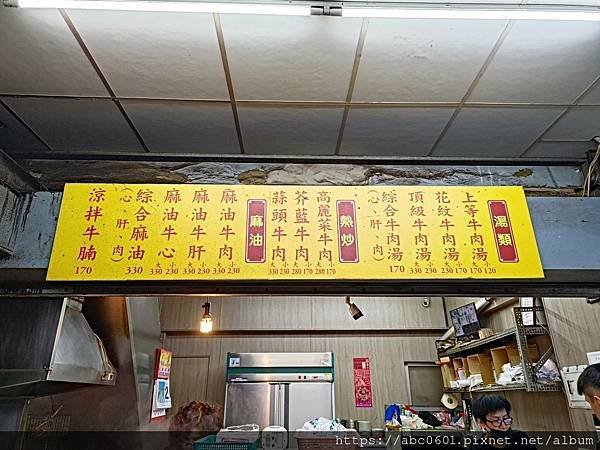 湯類
上等牛肉湯
大 小
170 120
花紋牛肉湯
大 小
230 170
頂級牛肉湯
大 小
330 230
綜合牛肉湯
(心、肝、肉)
170
熱炒
高麗菜牛肉
大 小
280 170
芥藍牛肉
大 小
280 170
蒜頭牛肉
大 小
330 230
麻油
麻油牛肉
大 小
330 230
麻油牛肝
大 小
330 230
麻油牛心
大 小
330 230
綜合麻油
(心、肝、肉)
330
涼拌牛腩
170
2
https://abc0601.pixnet.net/album